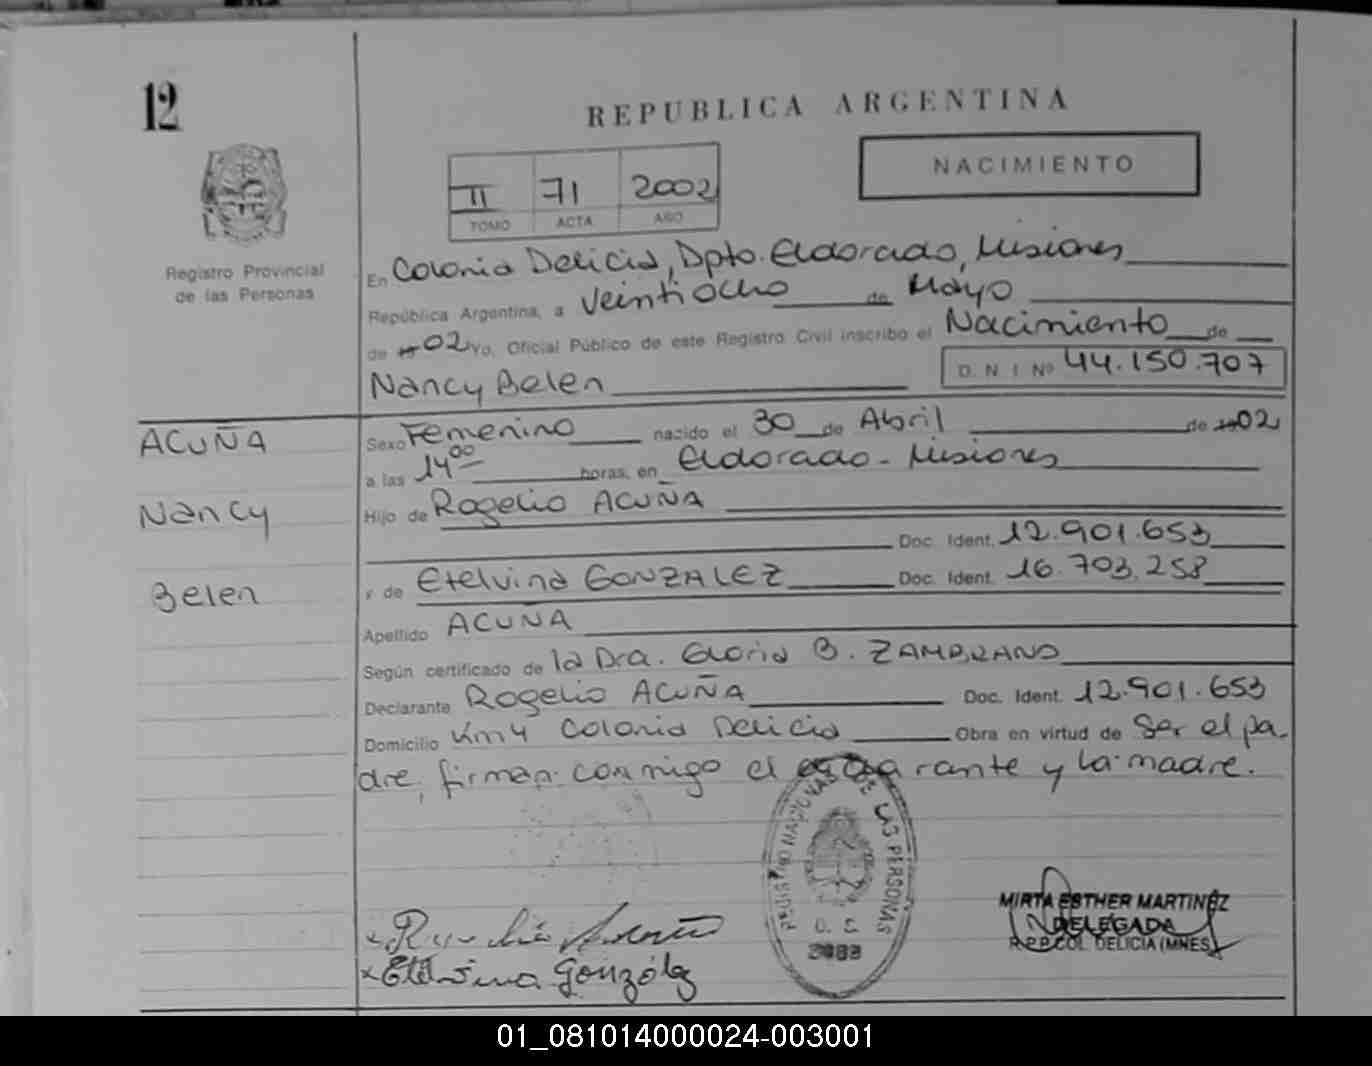 12
REPUBLICA ARGENTINA
NACIMIENTO
II 71 2002
TOMO ACTA AÑO
Registro Provincial
de las Personas
En Colonia Delicia, Dpto. Eldorado, Misiones
República Argentina, a Veintiocho de Mayo
de 02 Yo, Oficial Público de este Registro Civil inscribo el Nacimiento de
Nancy Belen D. N. I. Nº 44.150.707
ACUÑA
Nancy
Belen
Sexo Femenino nacido el 30 de Abril de 02
a las 14 00 horas, en Eldorado - Misiones
Hijo de Rogelio ACUÑA
Doc. Ident. 12.901.653
y de Etelvina GONZALEZ Doc. Ident. 16.703.258
Apellido ACUÑA
Según certificado de la Dra. Gloria B. ZAMBRANO
Declarante Rogelio ACUÑA Doc. Ident. 12.901.653
Domicilio Km 4 Colonia Delicia Obra en virtud de Ser el pa-
dre, firman conmigo el rante y la madre.
REGISTRO NACIONAL DE LAS PERSONAS
Etelvina González
MIRTA ESTHER MARTINEZ
DELEGADA
R.P.P. COL. DELICIA (MNES)
01_081014000024-003001